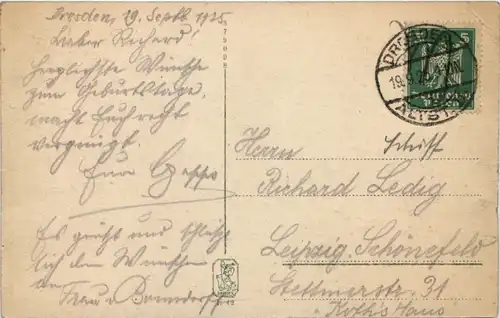 Dresden, 19. Septb. 1925
Lieber Richard!
Herzlichste Wünsche
zum Geburtstage,
macht Euch recht
vergnügt.
Eure
Es grüßt und schließt
sich den Wünschen
an
Frau
Herrn
Schiff
Richard Ledig
Leipzig-Schönefeld
Stettinerstr. 31
DRESDEN
19.9.25
ALTST.
5
DEUTSCHES
REICH